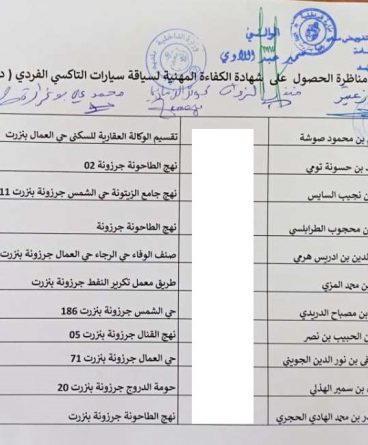 الوالي
سمير عبد اللاوي
وزارة الداخلية
مناظرة الحصول على شهادة الكفاءة المهنية لسياقة سيارات التاكسي الفردي ( د
بن محمود صوشة تقسيم الوكالة العقارية للسكنى حي العمال بنزرت
بن حسونة تومي نهج الطاحونة جرزونة 02
بن نجيب السايس نهج جامع الزيتونة حي الشمس جرزونة بنزرت 11
بن محجوب الطرابلسي نهج الطاحونة جرزونة
الدين بن ادريس هرمي صنف الوفاء حي الرجاء حي العمال جرزونة بنزرت
بن محمد المزي طريق معمل تكرير النفط جرزونة بنزرت
بن مصباح الدريدي حي الشمس جرزونة بنزرت 186
بن الحبيب بن نصر نهج القنال جرزونة بنزرت 05
بن نور الدين الجويني حي العمال جرزونة بنزرت 71
بن سمير الهذلي حومة الدروج جرزونة بنزرت 20
بن محمد الهادي الحجري نهج الطاحونة جرزونة بنزرت